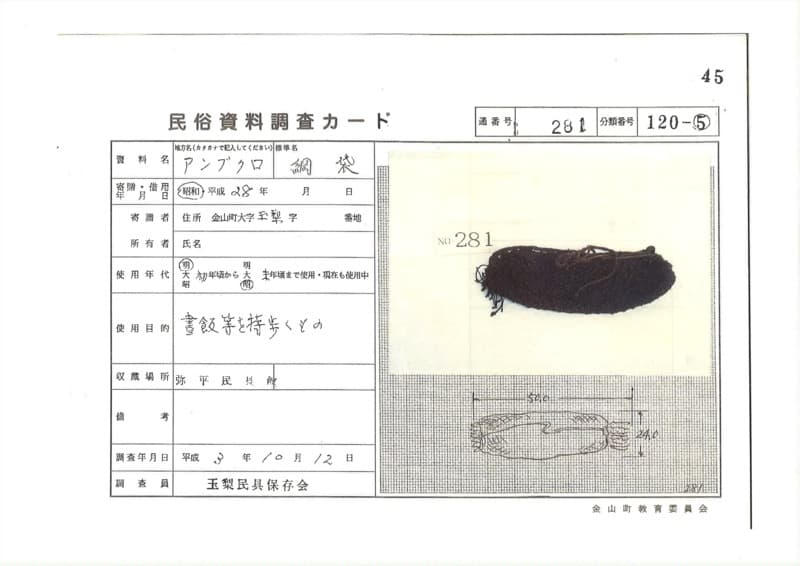 45
民俗資料調査カード
通番号 281 分類番号 120-⑤
資料名 地方名(カタカナで記入してください) アンブクロ 標準名 網袋
寄贈・借用年月日 昭和・平成 28年 月 日
寄贈者 住所 金山町大字玉梨字 番地
所有者 氏名
使用年代 明大昭 初年頃から 明大昭 末年頃まで使用・現在も使用中
使用目的 昼飯等を持歩くもの
収蔵場所 弥平民具館
備考
調査年月日 平成 3年10月12日
調査員 玉梨民具保存会
NO 281
50.0
24.0
281
金山町教育委員会